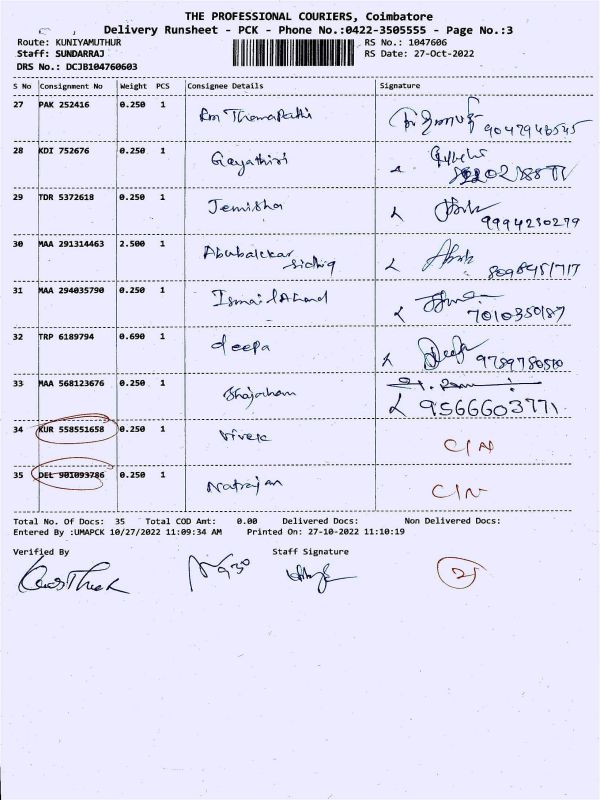 THE PROFESSIONAL COURIERS, Coimbatore
Delivery Runsheet - PCK - Phone No.:0422-3505555 - Page No.:3
Route: KUNIYAMUTHUR RS No.: 1047606
Staff: SUNDARRAJ RS Date: 27-Oct-2022
DRS No.: DCJB104760603
S No Consignment No Weight PCS Consignee Details Signature
27 PAK 252416 0.250 1
9047946545
28 KDI 752676 0.250 1 Gayathiri
29 TDR 5372618 0.250 1 Jemisha
9994230279
30 MAA 291314463 2.500 1 Abubakkar
sidhiq
8098451717
31 MAA 294035790 0.250 1 Ismail Ahamd
7010350187
32 TRP 6189794 0.690 1 deepa
Deepa 9789780510
33 MAA 568123676 0.250 1
9566603771
34 KUR 558551658 0.250 1 Vivek C/N
35 DEL 901093786 0.250 1 Natrajan C/N
Total No. Of Docs: 35 Total COD Amt: 0.00 Delivered Docs: Non Delivered Docs:
Entered By :UMAPCK 10/27/2022 11:09:34 AM Printed On: 27-10-2022 11:10:19
Verified By Staff Signature